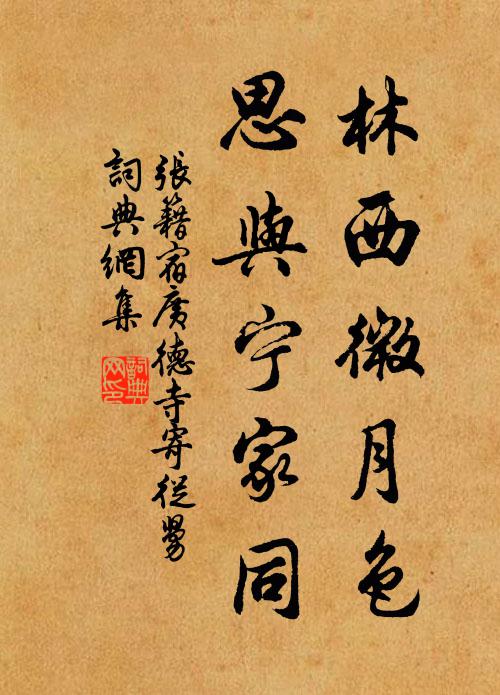 林西微月色
思與宁家同
張籍宿廣德寺寄從舅
詞典網集
詞典
网印